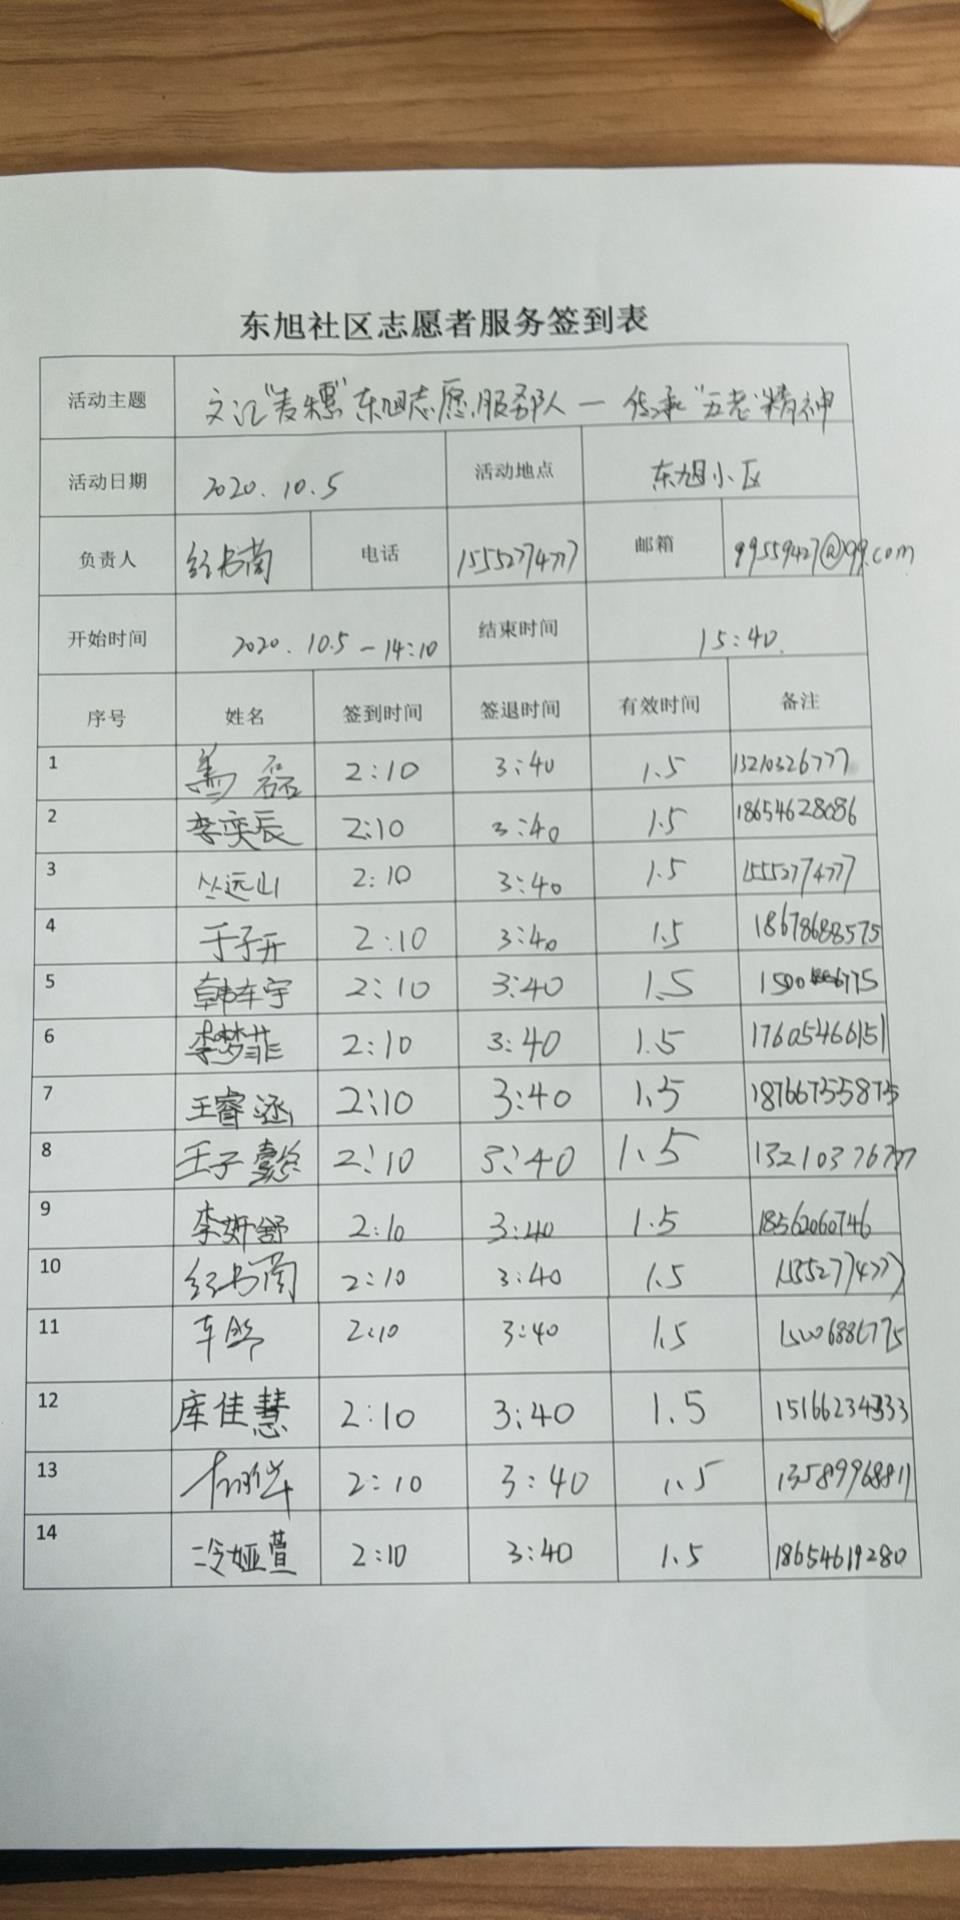 东旭社区志愿者服务签到表
活动主题 文汇"麦穗"东旭志愿服务队一传承"五老"精神
活动日期 2020.10.5 活动地点 东旭小区
负责人 电话 15552774777 邮箱 99559427@qq.com
开始时间 2020.10.5-14:10 结束时间 15:40.
序号 姓名 签到时间 签退时间 有效时间 备注
1 盖磊 2:10 3:40 1.5 13210326777
2 李奕辰 2:10 3:40 1.5 18654628086
3 丛远山 2:10 3:40 1.5 15552774777
4 于子开 2:10 3:40 1.5 18678688575
5 韩车宇 2:10 3:40 1.5
6 李梦菲 2:10 3:40 1.5 17605466151
7 王睿涵 2:10 3:40 1.5 18766755875
8 王子懿 2:10 3:40 1.5
9 李妍舒 2:10 3:40 1.5 18562060746
10 2:10 3:40 1.5 15552774777
11 2:10 3:40 1.5 15006886775
12 库佳慧 2:10 3:40 1.5 15166234333
13 2:10 3:40 1.5 13589968811
14 冷娅萱 2:10 3:40 1.5 18654619280